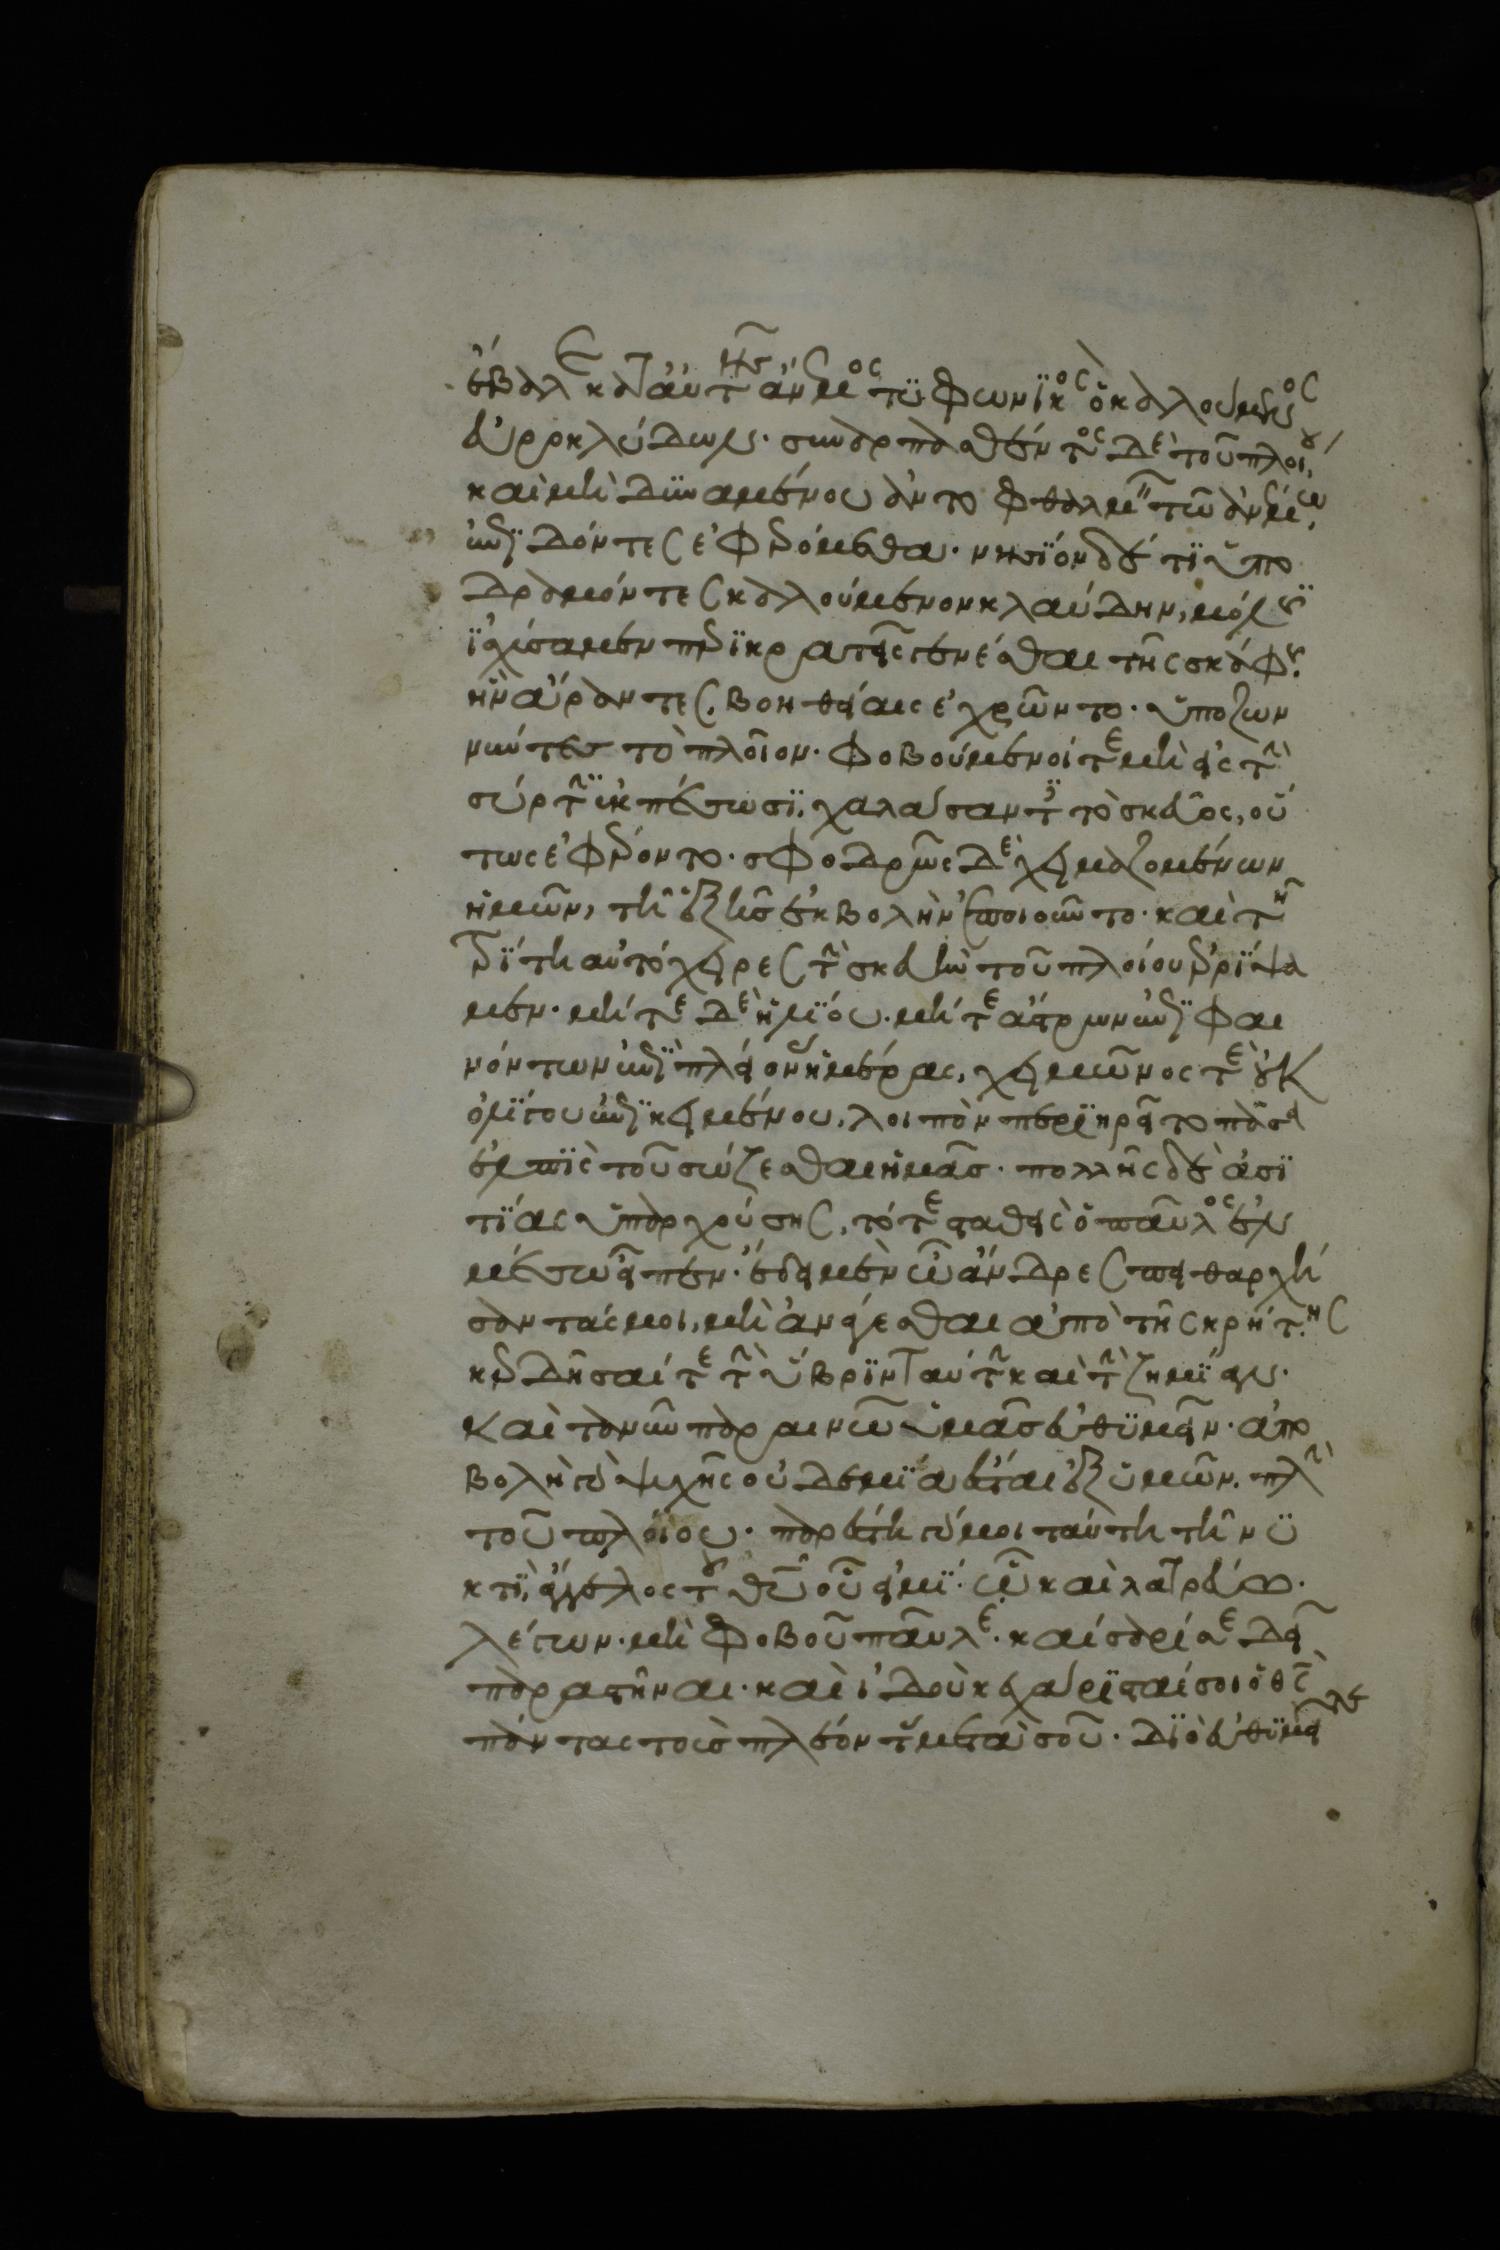 ἔβαλε κατ αὐτῆς ἄνεμος τυφωνικὸς ὁ καλούμενος
εὐροκλύδων. συναρπασθέντος δὲ τοῦ πλοίου
καὶ μὴ δυναμένου ἀντοφθαλμεῖν τῶ ἀνέμω,
ἐπιδόντες ἐφερόμεθα. νησίον δέ τι ὑπο
δραμόντες καλούμενον κλαύδην, μόλις
ἰσχύσαμεν περικρατεῖς γενέσθαι τῆς σκάφης.
ἣν ἄραντες, βοηθείαις ἐχρῶντο. ὑποζων
νύντες τὸ πλοῖον. φοβούμενοί τε μὴ εἰς τὴν
σύρτην ἐκπέσωσι, χαλάσαντες τὸ σκεῦος, οὕ
τως ἐφέροντο. σφοδρῶς δὲ χειμαζομένων
ἡμῶν, τῆ ἑξῆς ἐκβολὴν ἐποιοῦντο. καὶ τῆ
τρίτη αὐτόχειρες τὴν σκευὴν τοῦ πλοίου ἐρρίψα
μεν. μήτε δὲ ἡλίου. μήτε ἄστρων ἐπιφαι
νόντων ἐπὶ πλείονας ἡμέρας, χειμῶνος τε οὐκ
ὀλίγου ἐπικειμένου, λοιπὸν περιηρεῖτο πᾶσα
ἐλπὶς τοῦ σώζεσθαι ἡμᾶς. πολλῆς δὲ ἀσι
τίας ὑπαρχούσης, τότε σταθεὶς ὁ παῦλος ἐν
μέσω εἶπεν. ἔδει μὲν ὦ ἄνδρες πειθαρχή
σαντάς μοι, μὴ ἀνάγεσθαι ἀπὸ τῆς κρήτης
κερδῆσαί τε τὴν ὕβριν ταύτην καὶ τὴν ζημίαν.
καὶ τανῦν παραινῶ ὑμᾶς εὐθυμεῖν. ἀπο
βολὴ γὰρ ψυχῆς οὐδεμία ἔσται ἐξ ὑμῶν. πλὴν
τοῦ πλοίου. παρέστη γάρ μοι ταύτη τῆ νυ
κτὶ, ἄγγελος τοῦ θῦ οὗ εἰμί. ὧ καὶ λατρεύω.
λέγων. μὴ φοβοῦ παῦλε. καίσαρί σε δεῖ
παραστῆναι. καὶ ἰδοὺ κεχάρισταί σοι ὁ θς
πάντας τοὺς πλέοντας μετὰ σοῦ. διὸ εὐθυμεῖτε